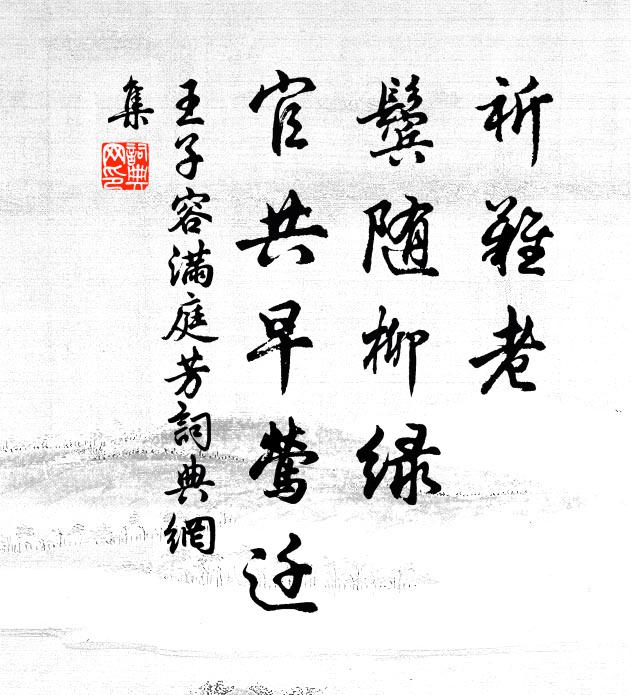 祈難老
鬓随柳绿
官共早莺迁
王子容满庭芳詞典網
集
詞典网印